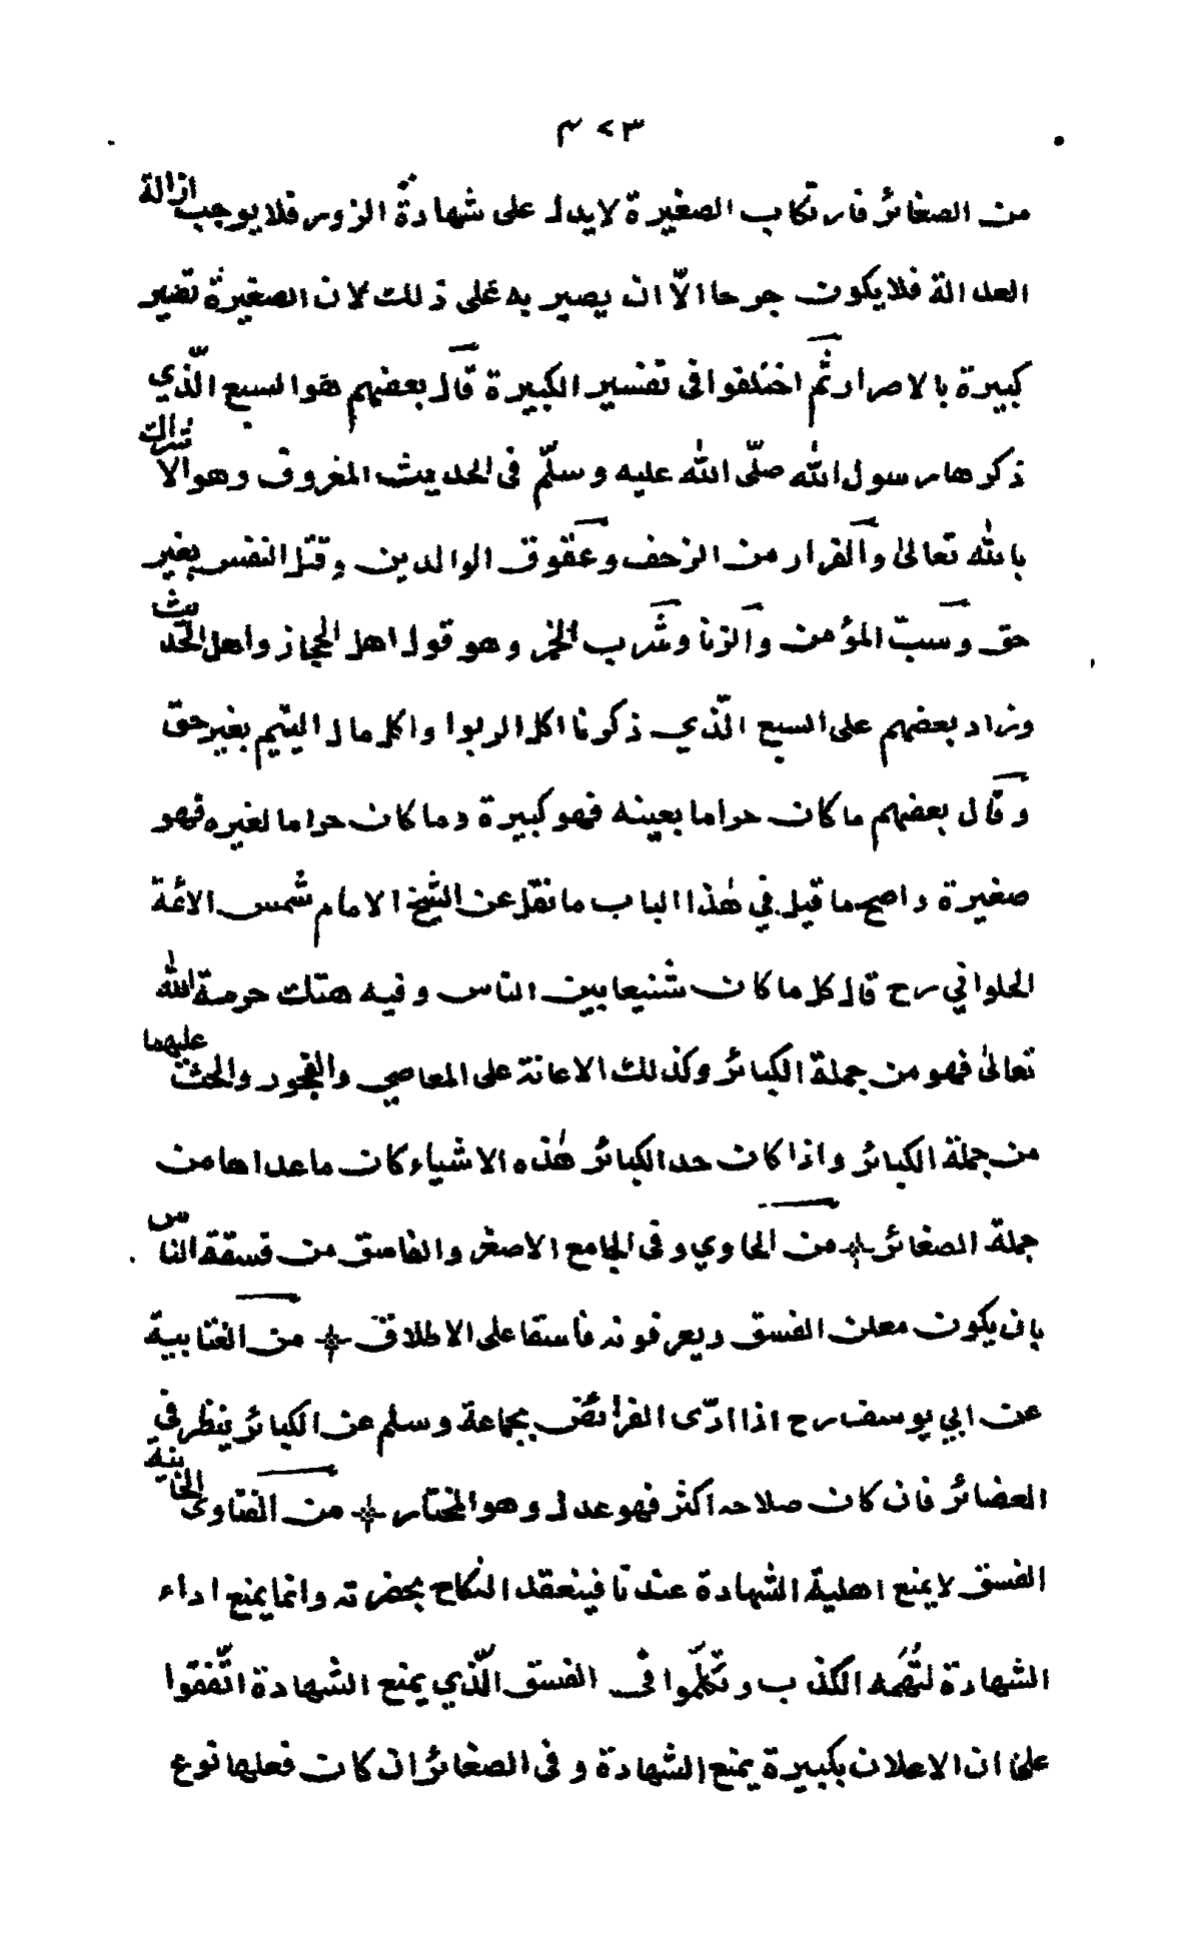 ٣٧٣
من الصغائر فارتكاب الصغيرة لا يدل على شهادة الزور فلا يوجب ازالة
العدالة فلا يكون جرحا الّا ان يصير به على ذلك لان الصغيرة تصير
كبيرة بالاصرار ثم اختلفوا فى تفسير الكبيرة قال بعضهم هو السبع الّذي
ذكرها رسول الله صلّى الله عليه وسلّم فى الحديث المعروف وهو الاشراك
بالله تعالىٰ والفرار من الزحف وعقوق الوالدين وقتل النفس بغير
حق وسبّ المؤمن والزنا وشرب الخمر وهو قول اهل الحجاز واهل الحديث
وزاد بعضهم على السبع الّذي ذكرنا اكل الربوا واكل مال اليتيم بغير حق
وقال بعضهم ما كان حراما بعينه فهو كبيرة وما كان حراما لغيره فهو
صغيرة واصح ما قيل في هٰذا الباب ما نقل عن الشيخ الامام شمس الائمة
الحلواني رح قال كل ما كان شنيعا بين الناس وفيه هتك حرمة الله
تعالىٰ فهو من جملة الكبائر وكذلك الاعانة على المعاصي والفجور والحث عليهما
من جملة الكبائر واذا كان حد الكبائر هٰذه الاشياء كان ما عداها من
جملة الصغائر من الحاوي وفى الجامع الاصغر والفاسق من فسقة الناس
بان يكون معلن الفسق ويعرفونه فاسقا على الاطلاق من العتابية
عن ابي يوسف رح اذا ادّى الفرائض بجماعة وسلم عن الكبائر ينظر في
الصغائر فان كان صلاحه اكثر فهو عدل وهو المختار من الفتاوى الخانية
الفسق لا يمنع اهلية الشهادة عندنا فينعقد النكاح بحضرته وانما يمنع اداء
الشهادة لتُهَمه الكذب وتكلّموا في الفسق الّذي يمنع الشهادة اتّفقوا
على ان الاعلان بكبيرة يمنع الشهادة وفى الصغائر ان كان فعلها نوع